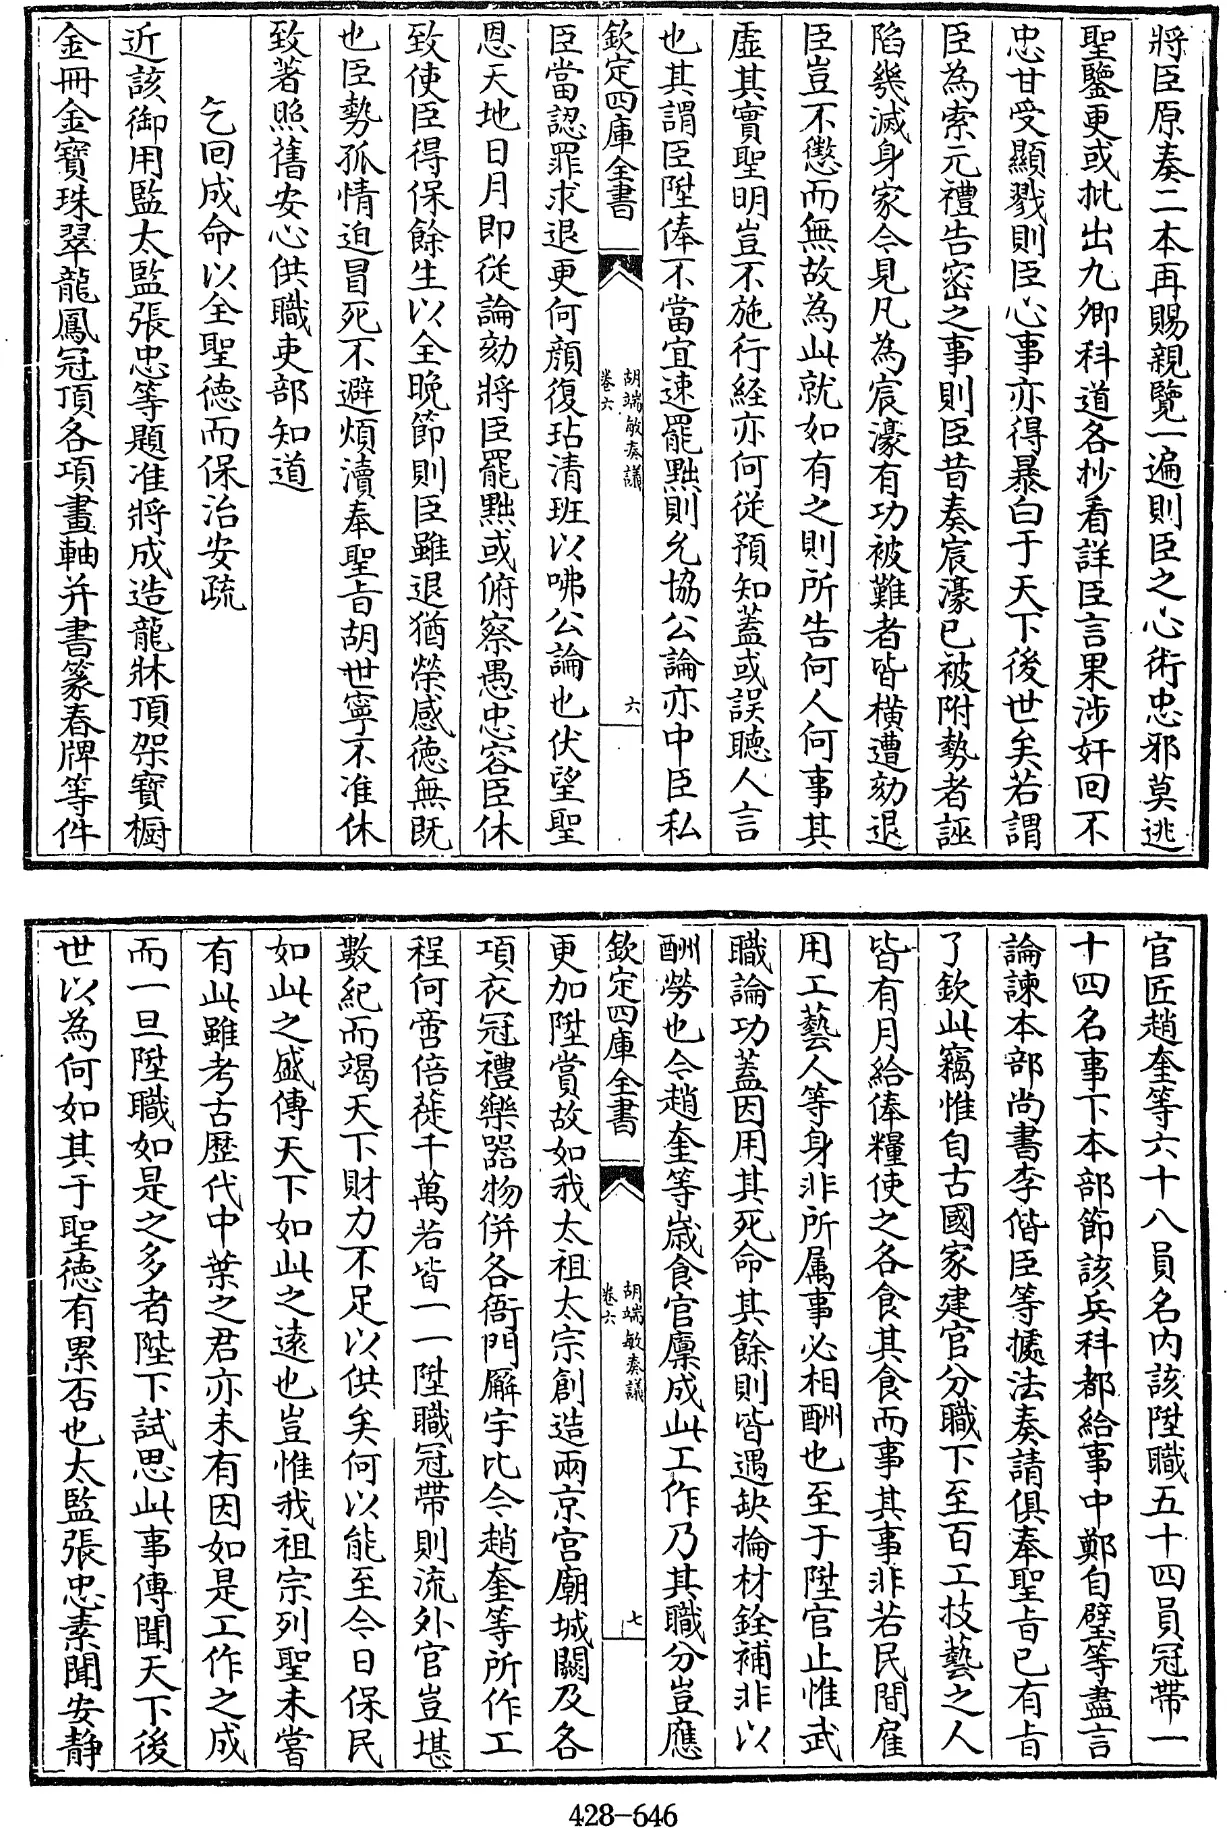 將臣原奏二本再賜親覽一遍則臣之心術忠邪莫逃
聖鑒更或批出九卿科道各抄看詳臣言果涉奸回不
忠甘受顯戮則臣心事亦得暴白于天下後世矣若謂
臣為索元禮告密之事則臣昔奏宸濠已被附勢者誣
陷幾滅身家今見凡為宸濠有功被難者皆橫遭劾退
臣豈不懲而無故為此就如有之則所告何人何事其
虛其實聖明豈不施行經亦何從預知蓋或誤聽人言
也其謂臣陞俸不當宜速罷黜則允協公論亦中臣私
欽定四庫全書
胡端敏奏議
卷六
六
臣當認罪求退更何顏復玷清班以咈公論也伏望聖
恩天地日月即從論劾將臣罷黜或俯察愚忠容臣休
致使臣得保餘生以全晚節則臣雖退猶榮感德無既
也臣勢孤情迫冒死不避煩瀆奉聖旨胡世寧不准休
致著照舊安心供職吏部知道
乞回成命以全聖德而保治安疏
近該御用監太監張忠等題准將成造龍牀頂架寶櫥
金冊金寶珠翠龍鳳冠頂各項畫軸并書篆春牌等件
官匠趙奎等六十八員名內該陞職五十四員冠帶一
十四名事下本部節該兵科都給事中鄭自璧等盡言
論諫本部尚書李偕臣等據法奏請俱奉聖旨已有旨
了欽此竊惟自古國家建官分職下至百工技藝之人
皆有月給俸糧使之各食其食而事其事非若民間雇
用工藝人等身非所屬事必相酬也至于陞官止惟武
職論功蓋因用其死命其餘則皆遇缺掄材銓補非以
酬勞也今趙奎等歲食官廩成此工作乃其職分豈應
欽定四庫全書
胡端敏奏議
卷六
七
更加陞賞故如我太祖太宗創造兩京宮廟城闕及各
項衣冠禮樂器物併各衙門廨宇比今趙奎等所作工
程何啻倍蓰千萬若皆一一陞職冠帶則流外官豈堪
數紀而竭天下財力不足以供矣何以能至今日保民
如此之盛傳天下如此之遠也豈惟我祖宗列聖未嘗
有此雖考古歷代中葉之君亦未有因如是工作之成
而一旦陞職如是之多者陛下試思此事傳聞天下後
世以為何如其于聖德有累否也太監張忠素聞安靜
428-646